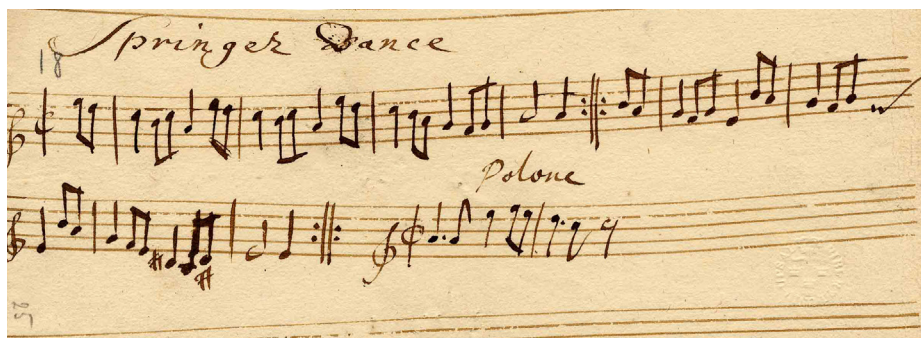 Springer Dance
18
Polone
25